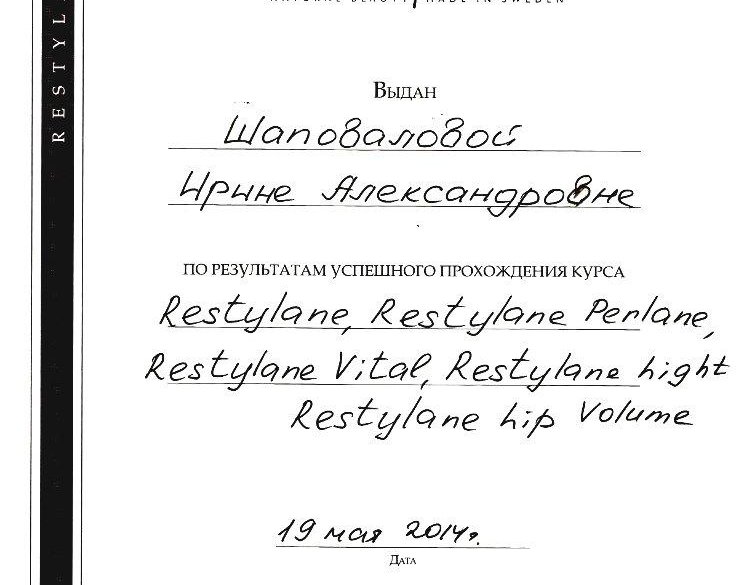 RESTYL
NATURAL BEAUTY MADE IN SWEDEN
Выдан
Шаповаловой
Ирине Александровне
по результатам успешного прохождения курса
Restylane, Restylane Perlane,
Restylane Vital, Restylane Light
Restylane Lip Volume
19 мая 2014г.
Дата